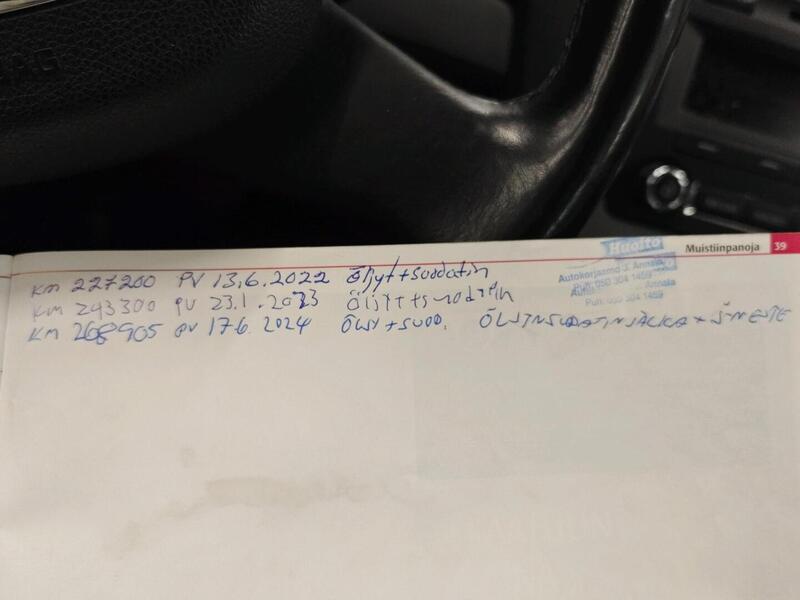 Muistiinpanoja 39
Huolto
Autokorjaamo J. Annala
Puh. 050 304 1459
Annala
Puh. 050 304 1459
KM 227200 PV 13.6.2022 Öljyt+suodatin
KM 243300 PV 23.1.2023 Öljyt+suodatin
KM 268905 PV 17.6.2024 ÖLJY+SUOD. ÖLJYNSUODATINJALKA + J-NESTE